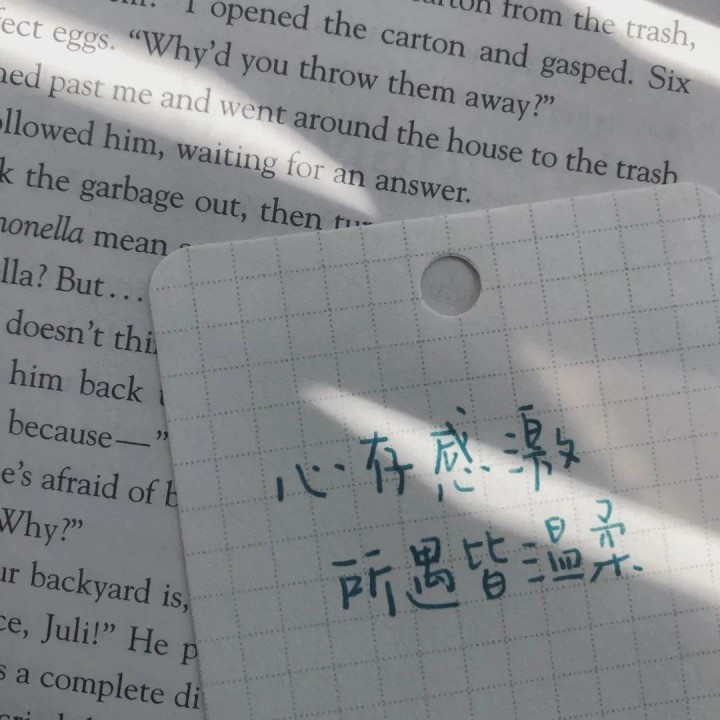 carton from the trash,
I opened the carton and gasped. Six
fect eggs. “Why’d you throw them away?”
hed past me and went around the house to the trash
ollowed him, waiting for an answer.
k the garbage out, then
monella mean
lla? But…
doesn’t thi
him back
because—”
e’s afraid of b
Why?”
ur backyard is,
ce, Juli!” He p
s a complete di
心存感激
所遇皆温柔